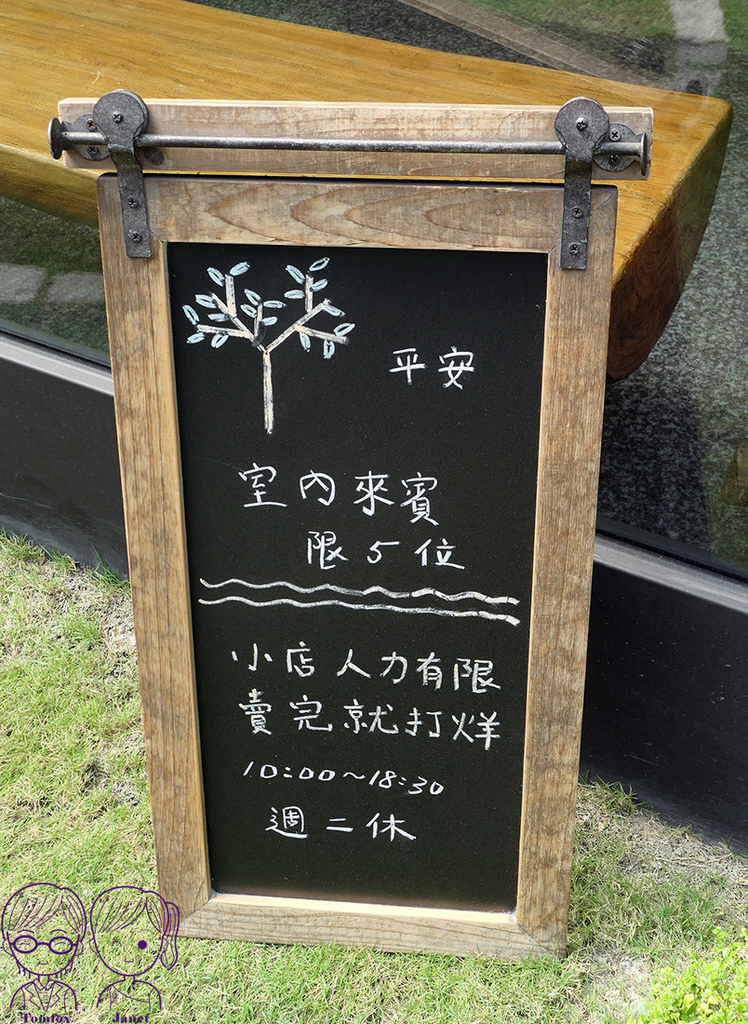 平安
室內來賓
限5位
小店人力有限
賣完就打烊
10:00~18:30
週二休
Tomfox Janet